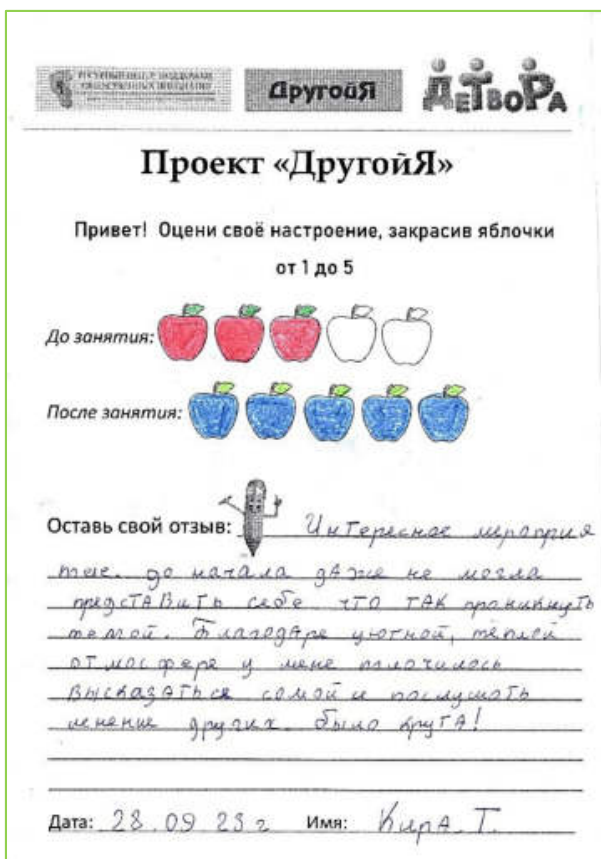 РЕСУРСНЫЙ ЦЕНТР ПОДДЕРЖКИ
ОБЩЕСТВЕННЫХ ИНИЦИАТИВ
ДругойЯ
ДЕТВОРА
Проект «ДругойЯ»
Привет! Оцени своё настроение, закрасив яблочки
от 1 до 5
До занятия:
После занятия:
Оставь свой отзыв: Интересное мероприя
тие. до начала даже не могла
представить себе что так проникнуть
темой. Благодаре уютной, теплой
отмосфере у мене получилось
высказаться самой и послушать
мнение других. было крута!
Дата: 28.09 23 г Имя: Кира. Т.